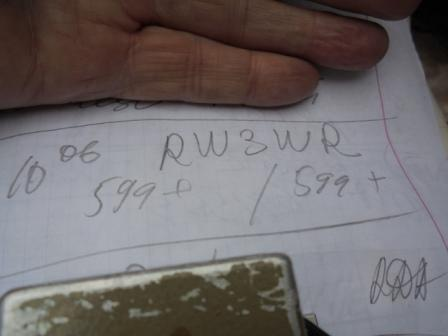 10 06 RW3WR
599+ / 599+
RDA